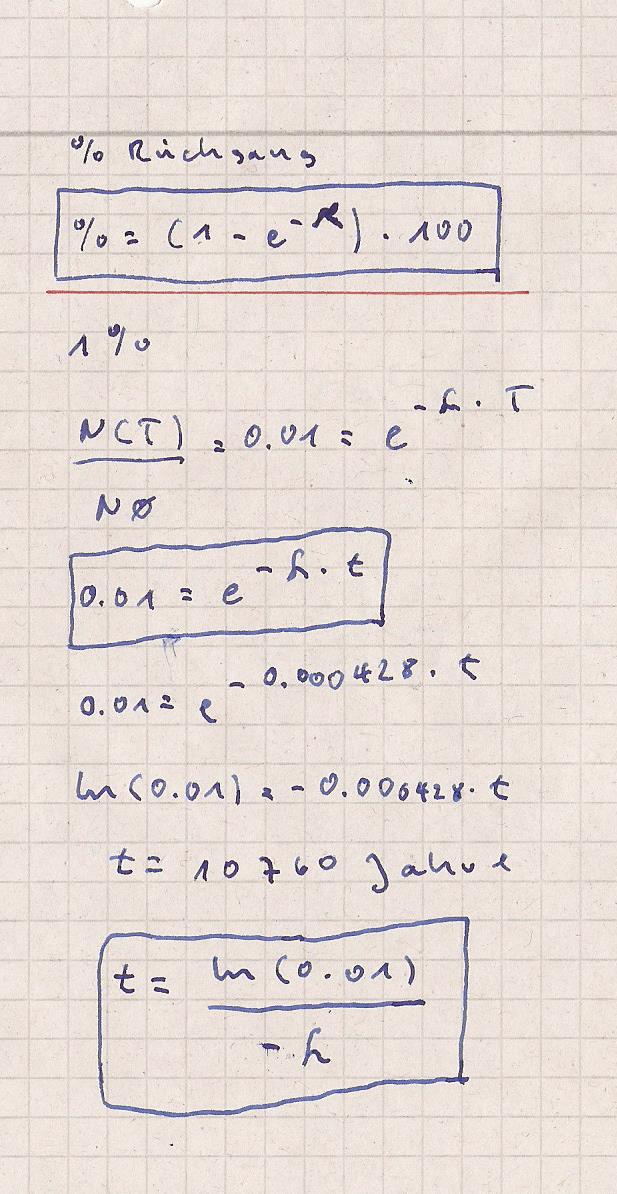 % Rückgang
% = (1 - e^-k) . 100
1 %
N(T) / N0 = 0.01 = e^-k . T
0.01 = e^-k . t
0.01 = e^-0.000428 . t
ln(0.01) = -0.000428 . t
t = 10760 Jahre
t = ln(0.01) / -k